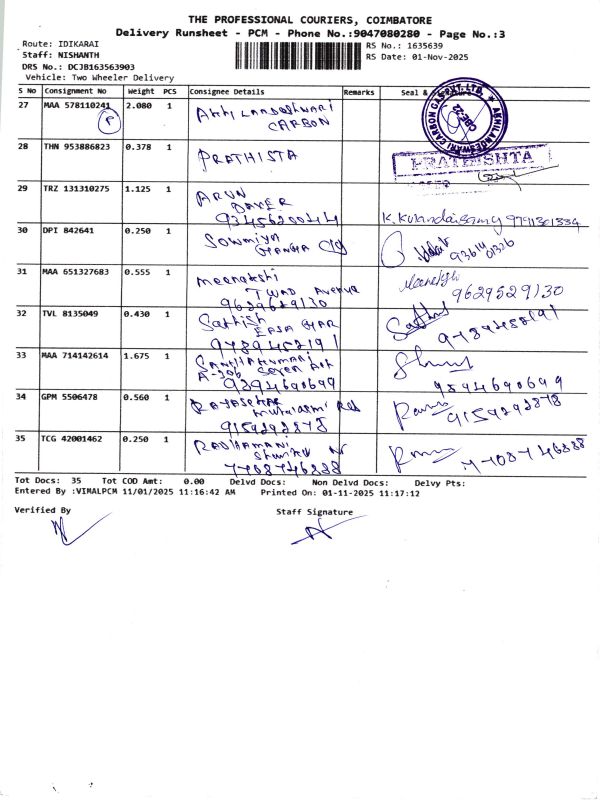 THE PROFESSIONAL COURIERS, COIMBATORE
Delivery Runsheet - PCM - Phone No.:9047080280 - Page No.:3
Route: IDIKARAI
RS No.: 1635639
Staff: NISHANTH
RS Date: 01-Nov-2025
DRS No.: DCJB163563903
Vehicle: Two Wheeler Delivery
S No Consignment No Weight PCS Consignee Details Remarks Seal &
27 MAA 578110241 2.080 1 Akhilandeshwari
CARBON
P
28 THN 953886823 0.378 1 PRATHISTA
PRATHISHTA
29 TRZ 131310275 1.125 1 ARUN
9345620044
30 DPI 842641 0.250 1 Sowmiya
31 MAA 651327683 0.555 1 meenakshi
TWAD Avenue
9629629130
9629529130
32 TVL 8135049 0.430 1 Sathish
9789452191
33 MAA 714142614 1.675 1
9894690699
9894690699
34 GPM 5506478 0.560 1 RAJASEKAR
9159292878
9159292878
35 TCG 42001462 0.250 1 RADHAMANI
7708746888
7708746888
Tot Docs: 35 Tot COD Amt: 0.00 Delvd Docs: Non Delvd Docs: Delvy Pts:
Entered By :VIMALPCM 11/01/2025 11:16:42 AM Printed On: 01-11-2025 11:17:12
Verified By Staff Signature